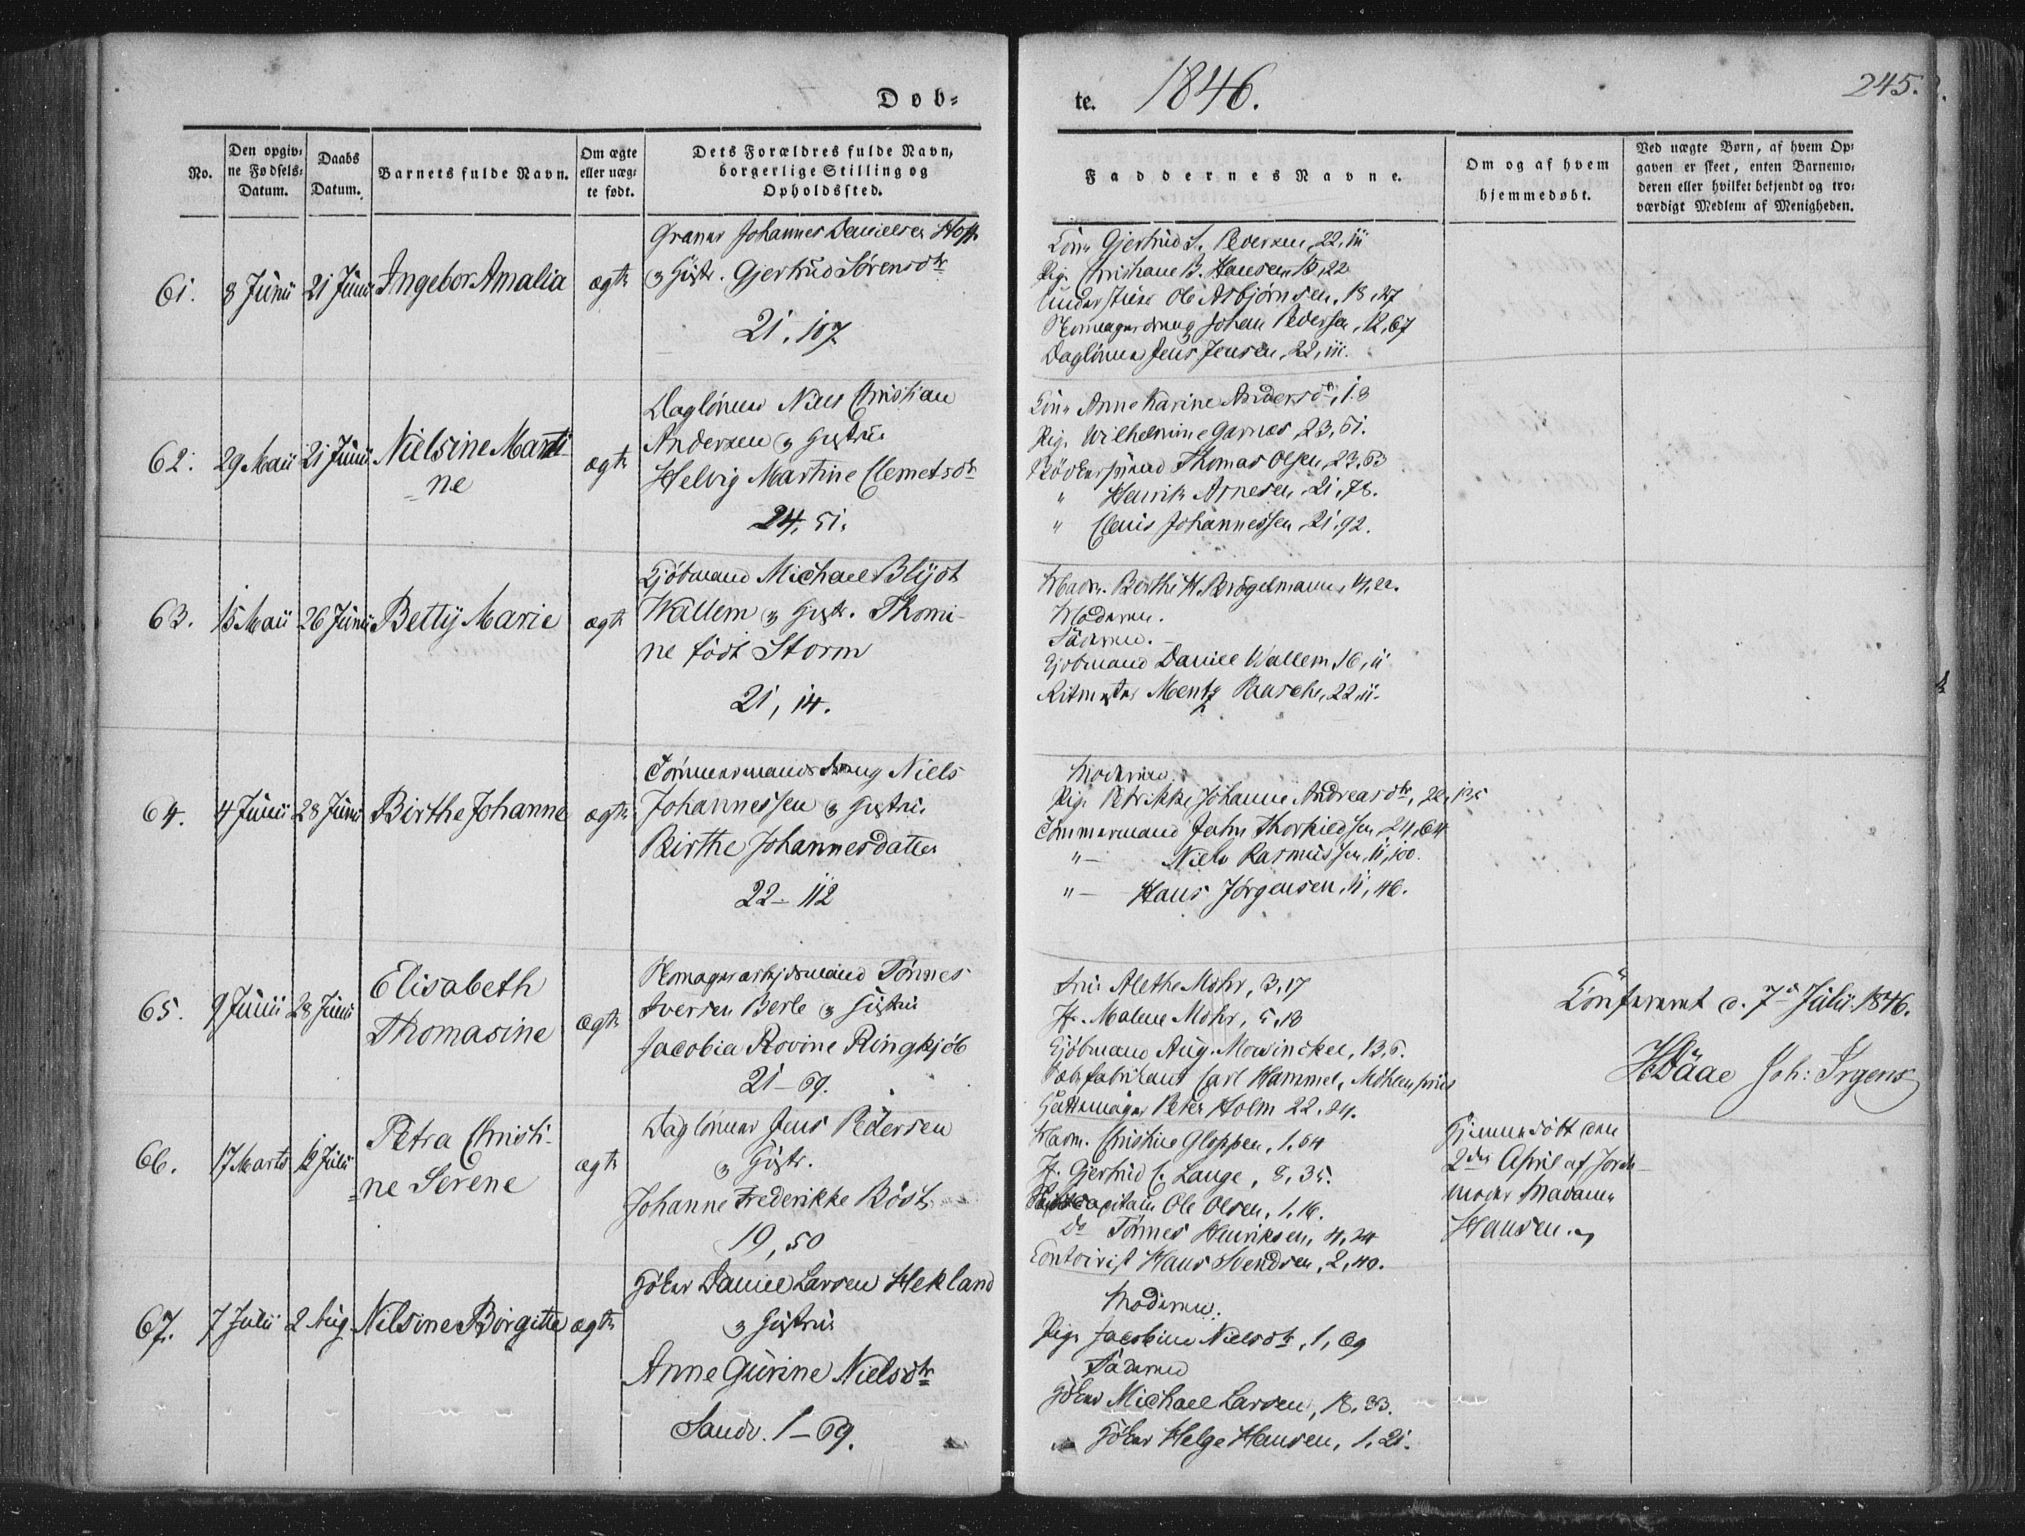 Døb-
te. 1846.
245.
No.
Den opgiv-
ne Fødsels-
Datum.
Daabs
Datum.
Barnets fulde Navn.
Om ægte
eller uæg-
te født.
Dets Forældres fulde Navn,
borgerlige Stilling og
Opholdssted.
Faddernes Navne.
Om og af hvem
hjemmedøbt.
Ved uægte Børn, af hvem Op-
gaven er skeet, enten Barnemo-
deren eller hvilket bekjendt og tro-
værdigt Medlem af Menigheden.
61. 8 Junii 21 Junii Ingebor Amalia ægte
Johannes Danielsen Hopp
& Hustr. Gjertrud Sørensdtr
21, 107
Kone Gjertrud S. Pedersen, 22, 111
Pige Christiane B. Hansen 15, 22
Ole Asbjørnsen, 18, 27
Johan Pedersen, 12, 67
Dagløner Jens Jensen, 22, 111.
62. 29 Maii 21 Junii Nielsine Marti-
ne
ægte
Dagløner Niels Christian
Andersen & Hustrue
Helvig Martine Clemetsdtr
24, 51.
Kone Anne Karine Andersdtr, 1.3
Pige Wilhelmine Garnæs, 23, 51.
Bødkersvend Thomas Olsen, 23, 63
" Henrik Arnesen, 21, 78.
" Claus Johannessen, 21, 92.
63. 15 Maii 26 Junii Betty Marie ægte
Kjøbmand Michael Blydt
Wallem & Hustr. Thomi-
ne født Storm
21, 14.
Madm. Berthe H. Brøgelmann, 14, 22.
Moderen.
Faderen.
Kjøbmand Daniel Wallem, 16, 11
Ritmester Mentz Paasche, 22, 11.
64. 4 Junii 28 Junii Birthe Johanne ægte
Tømmermandsdreng Niels
Johannessen & Hustrue
Birthe Johannesdatter
22 – 112
Moderen.
Pige Petrikke Johanne Andreasdtr, 22, 135
Tømmermand John Thorkildsen, 24, 64
" – Niels Rasmussen, 11, 100.
" – Hans Jørgensen, 11, 46.
65. 9 Junii 28 Junii Elisabeth
Thomasine
ægte
Tønnes
Iversen Berle & Hustrue
Jacobia Rovine Ringkjøb
21 – 69.
Frue Alethe Mohr, 3, 17
Jf. Malene Mohr, 5, 18
Kjøbmand Aug. Mowinckel, 13, 5.
Carl Hammel, Møhlenpriis
Hattemager Peter Holm 22, 84.
Confereret d. 7de Julii 1846.
HDaae Joh: Irgens
66. 17 Marts 12 Julii Petra Christi-
ne Serene
ægte
Dagløner Jens Pedersen
& Hustr.
Johanne Frederikke Böst
19, 50
Madm. Christine Gloppen, 1, 54
Jf. Gjertrud C. Lange, 8, 35.
Ole Olsen, 1, 16.
Do Tønnes Henriksen, 4, 24
Contoirist Hans Svendsen, 2, 40.
Hjemmedøbt den
2den April af Jorde-
moder Madame
Hansen.
67. 7 Julii 2 Aug. Nilsine Birgitte ægte
Høker Daniel Larsen Hekland
& Hustrue
Anne Gurine Nielsdtr
Sandv. 1 – 69.
Moderen.
Pige Jacobine Nielsdtr, 1, 69
Faderen
Høker Michael Larsen, 18, 33.
Høker Helge Hansen, 1, 21.